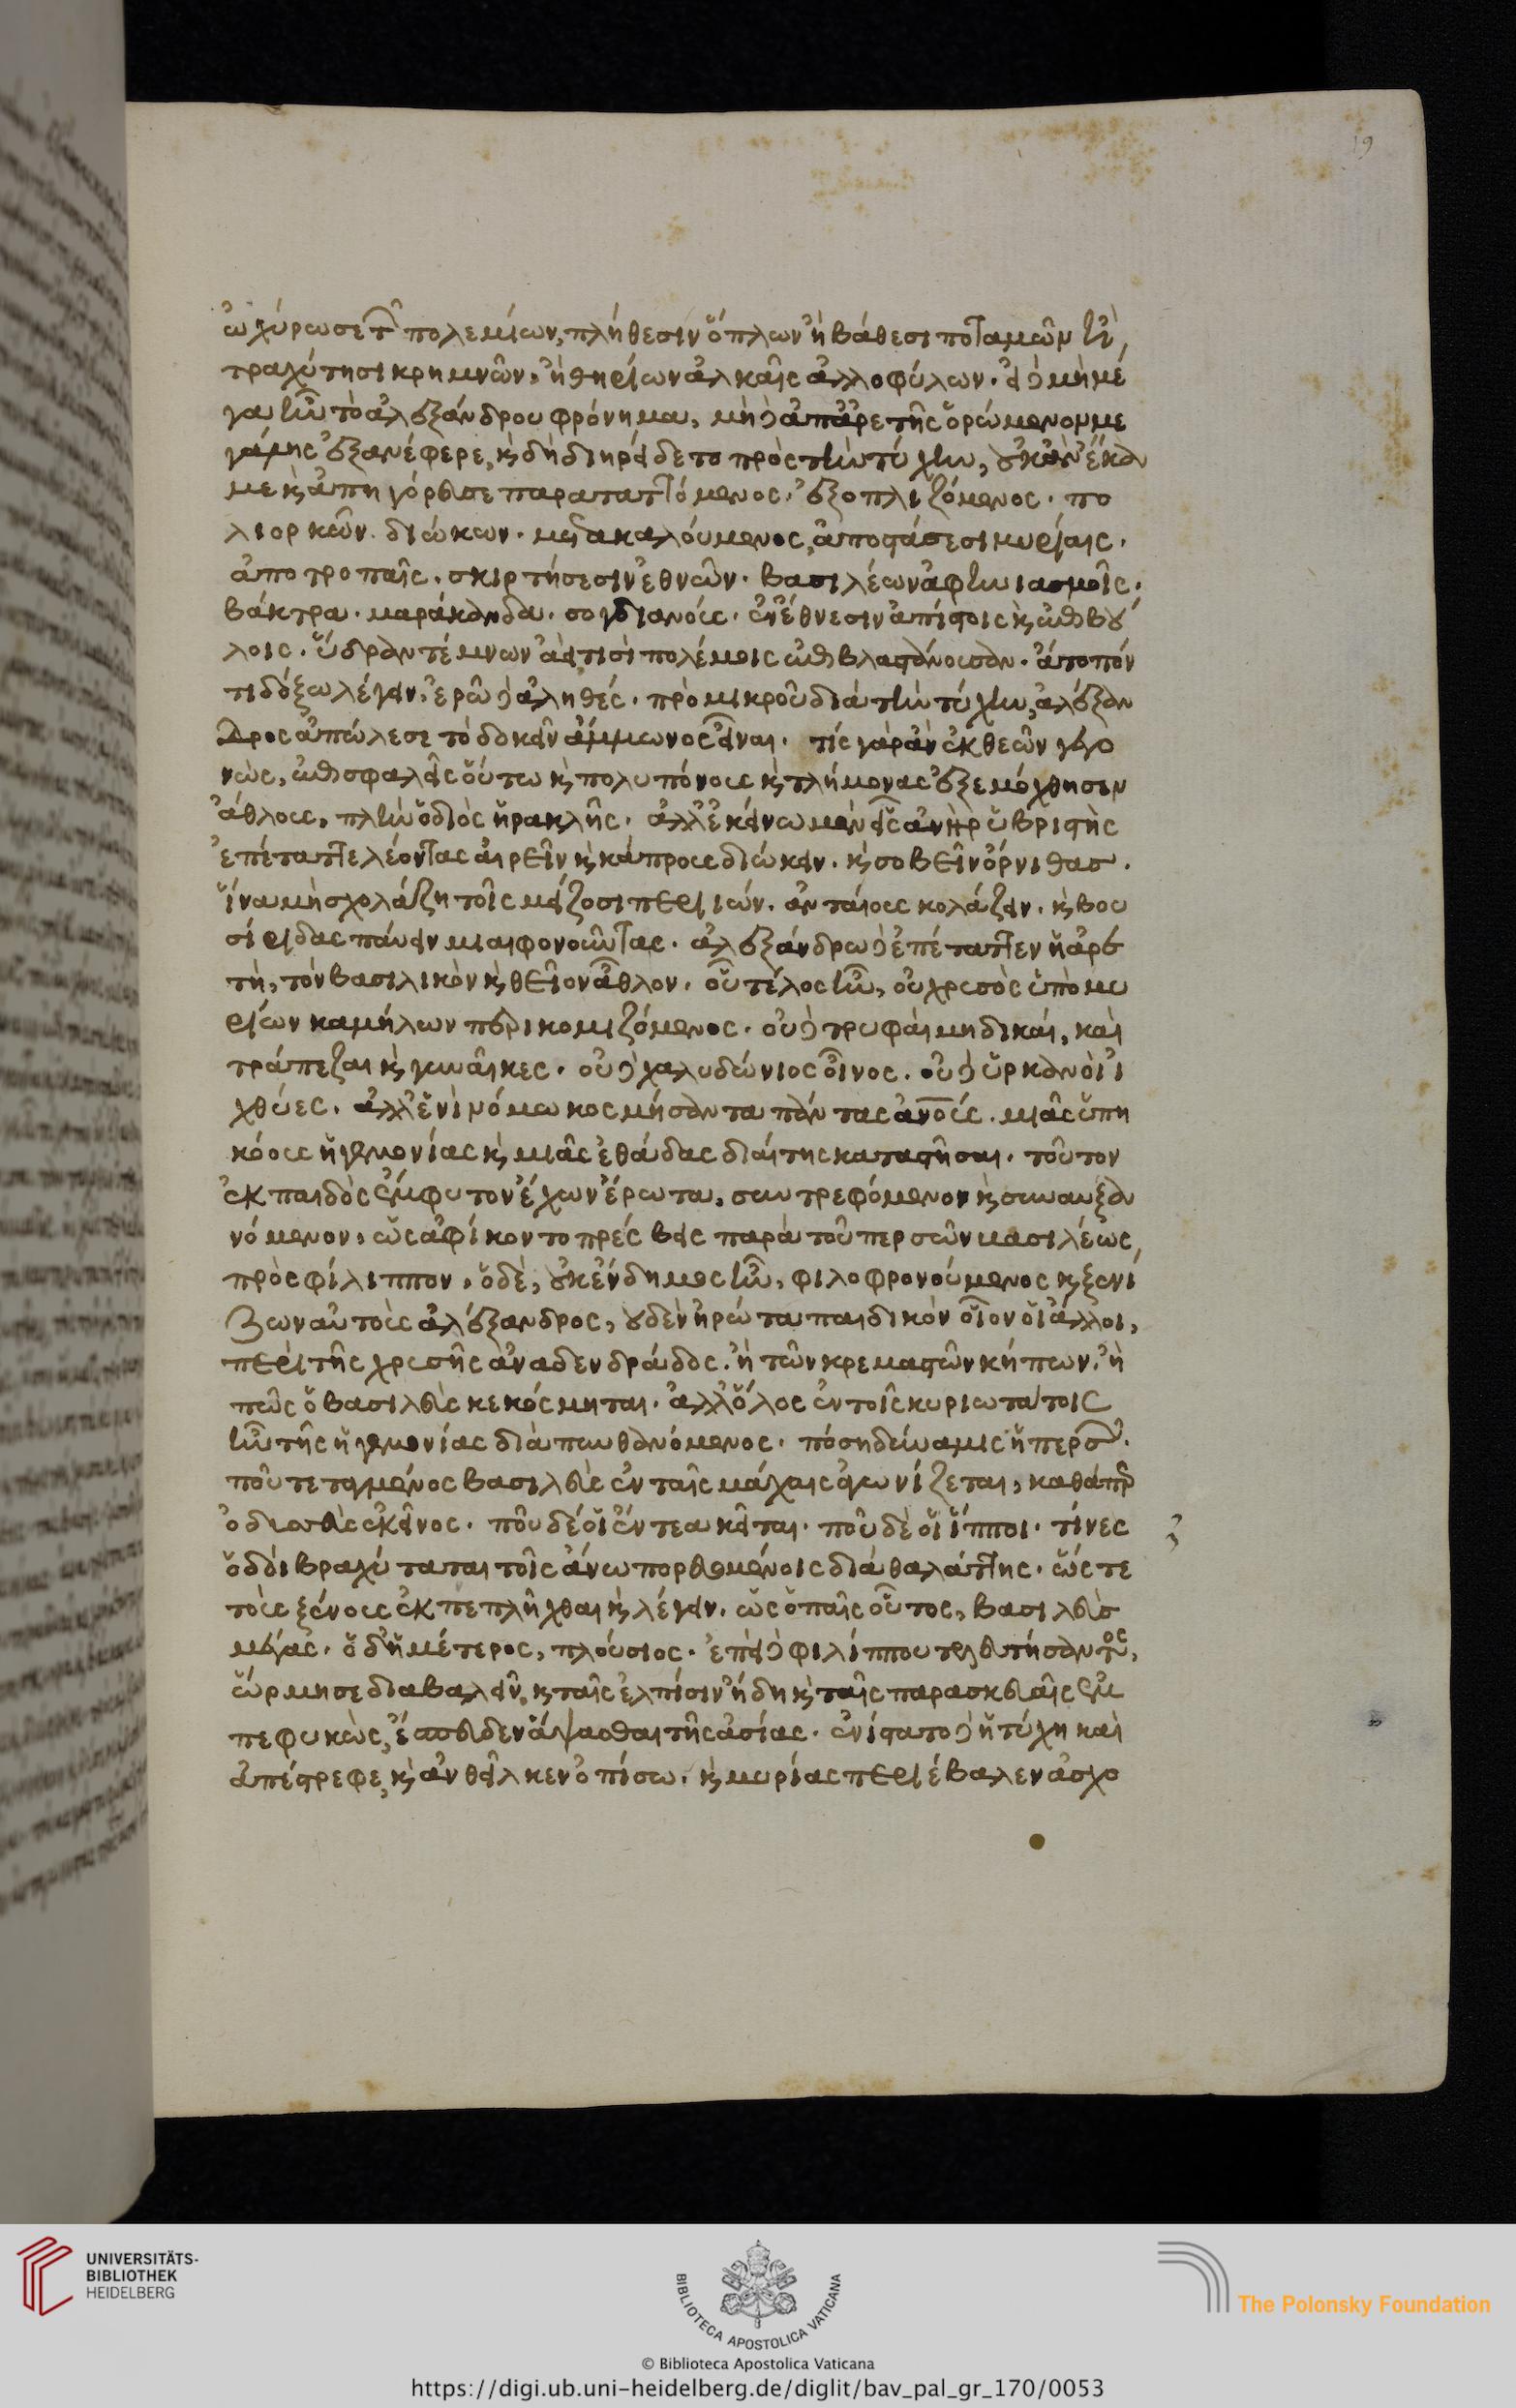 19
ὠχύρωσε τῶν πολεμίων, πλήθεσιν ὅπλων ἢ βάθεσι ποταμῶν ἢ
τραχύτησι κρημνῶν, ἢ θηρίων ἀλκαῖς ἀλλοφύλων. εἰ δὲ μὴ μέ
γα ἦν τὸ ἀλεξάνδρου φρόνημα, μὴ δὲ ἀπ' ἀρετῆς ὁρώμενον με
γάλης ἐξανέφερε, καὶ δὴ διηρείδετο πρὸς τὴν τύχην, οὐκ ἂν ἔκαν
με καὶ ἀπηγόρευσε παραταττόμενος, ἐξοπλιζόμενος. πο
λιορκῶν. διώκων. μετακαλούμενος, ἀποστάσεσι μυρίαις.
ἀποτροπαῖς. σκιρτήσεσιν ἐθνῶν. βασιλέων ἀφηνιασμοῖς.
βάκτρα. μαράκανδα. σογδιανούς. ἐν ἔθνεσιν ἀπίστοις καὶ ἐπιβού
λοις. ὕδραν τέμνων ἀεί τισὶ πολέμοις ἐπιβλαστάνουσαν. ἄτοπόν
τι δόξω λέγειν, ἐρῶ δὲ ἀληθές. πρὸ μικροῦ διὰ τὴν τύχην, ἀλέξαν
δρος ἀπώλεσε τὸ δοκεῖν ἄμμωνος εἶναι. τίς γὰρ ἂν ἐκ θεῶν γεγο
νὼς, ἐπισφαλεῖς οὕτω καὶ πολυπόνους καὶ τλήμονας ἐξεμόχθησεν
ἄθλους, πλὴν ὁ διὸς ἡρακλῆς. ἀλλ' ἐκείνω μὲν εἷς ἀνὴρ ὑβριστὴς
ἐπέταττε λέοντας αἱρεῖν καὶ κάπρους διώκειν. καὶ σοβεῖν ὄρνιθας.
ἵνα μὴ σχολάζη τοῖς μείζοσι περιιών. ἀνταίους κολάζειν. καὶ βου
σίριδας παύειν μιαιφονοῦντας. ἀλεξάνδρω δὲ ἐπέταττεν ἡ ἀρε
τὴ, τὸν βασιλικὸν καὶ θεῖον ἆθλον. οὗ τέλος ἦν, οὐ χρυσὸς ὑπὸ μυ
ρίων καμήλων περικομιζόμενος. οὐδὲ τρυφαὶ μηδικαί, καὶ
τράπεζαι καὶ γυναῖκες. οὐδὲ χαλυδώνιος οἶνος. οὐδὲ ὑρκανοὶ ἰ
χθύες. ἀλλ' ἑνὶ νόμω κοσμήσαντα πάντας ἀνους. μιᾶς ὑπη
κόους ἡγεμονίας καὶ μιᾶς ἐθάδας διαίτης καταστῆσαι. τοῦτον
ἐκ παιδὸς ἔμφυτον ἔχων ἔρωτα, συντρεφόμενον καὶ συναυξα
νόμενον, ὡς ἀφίκοντο πρέσβεις παρὰ τοῦ περσῶν βασιλέως,
πρὸς φίλιππον, ὁ δὲ, οὐκ ἔνδημος ἦν, φιλοφρονούμενος καὶ ξενί
ζων αὐτοὺς ἀλέξανδρος, οὐδὲν ἠρώτα παιδικὸν οἷον οἱ ἄλλοι,
περὶ τῆς χρυσῆς ἀναδενδράδος. ἢ τῶν κρεμαστῶν κήπων. ἢ
πῶς ὁ βασιλεὺς κεκόσμηται. ἀλλ' ὅλος ἐν τοῖς κυριωτάτοις
ἦν τῆς ἡγεμονίας διαπυνθανόμενος. πόση δύναμις ἡ περσῶν.
ποῦ τεταγμένος βασιλεὺς ἐν ταῖς μάχαις ἀγωνίζεται, καθάπερ
ὀδυσσεὺς ἐκεῖνος. ποῦ δέ οἱ ἔντεα κεῖται. ποῦ δὲ οἱ ἵπποι. τίνες
ὁδοὶ βραχύταται τοῖς ἄνω πορευομένοις διὰ θαλάττης. ὥστε
τοὺς ξένους ἐκπεπλῆχθαι καὶ λέγειν. ὡς ὁ παῖς οὗτος, βασιλεὺς
μέγας. ὁ δ' ἡμέτερος, πλούσιος. ἐπεὶ δὲ φιλίππου τελευτήσαντος,
ὥρμησε διαβαλεῖν, καὶ ταῖς ἐλπίσιν ἤδη καὶ ταῖς παρασκευαῖς ἐμ
πεφυκὼς, ἔσπευδεν ἅψασθαι τῆς ἀσίας. ἐνίστατο δὲ ἡ τύχη καὶ
ἀπέστρεφε, καὶ ἀνθεῖλκεν ὀπίσω, καὶ μυρίας περιέβαλεν ἀσχο
UNIVERSITÄTS-
BIBLIOTHEK
HEIDELBERG
BIBLIOTECA APOSTOLICA VATICANA
The Polonsky Foundation
© Biblioteca Apostolica Vaticana
https://digi.ub.uni-heidelberg.de/diglit/bav_pal_gr_170/0053